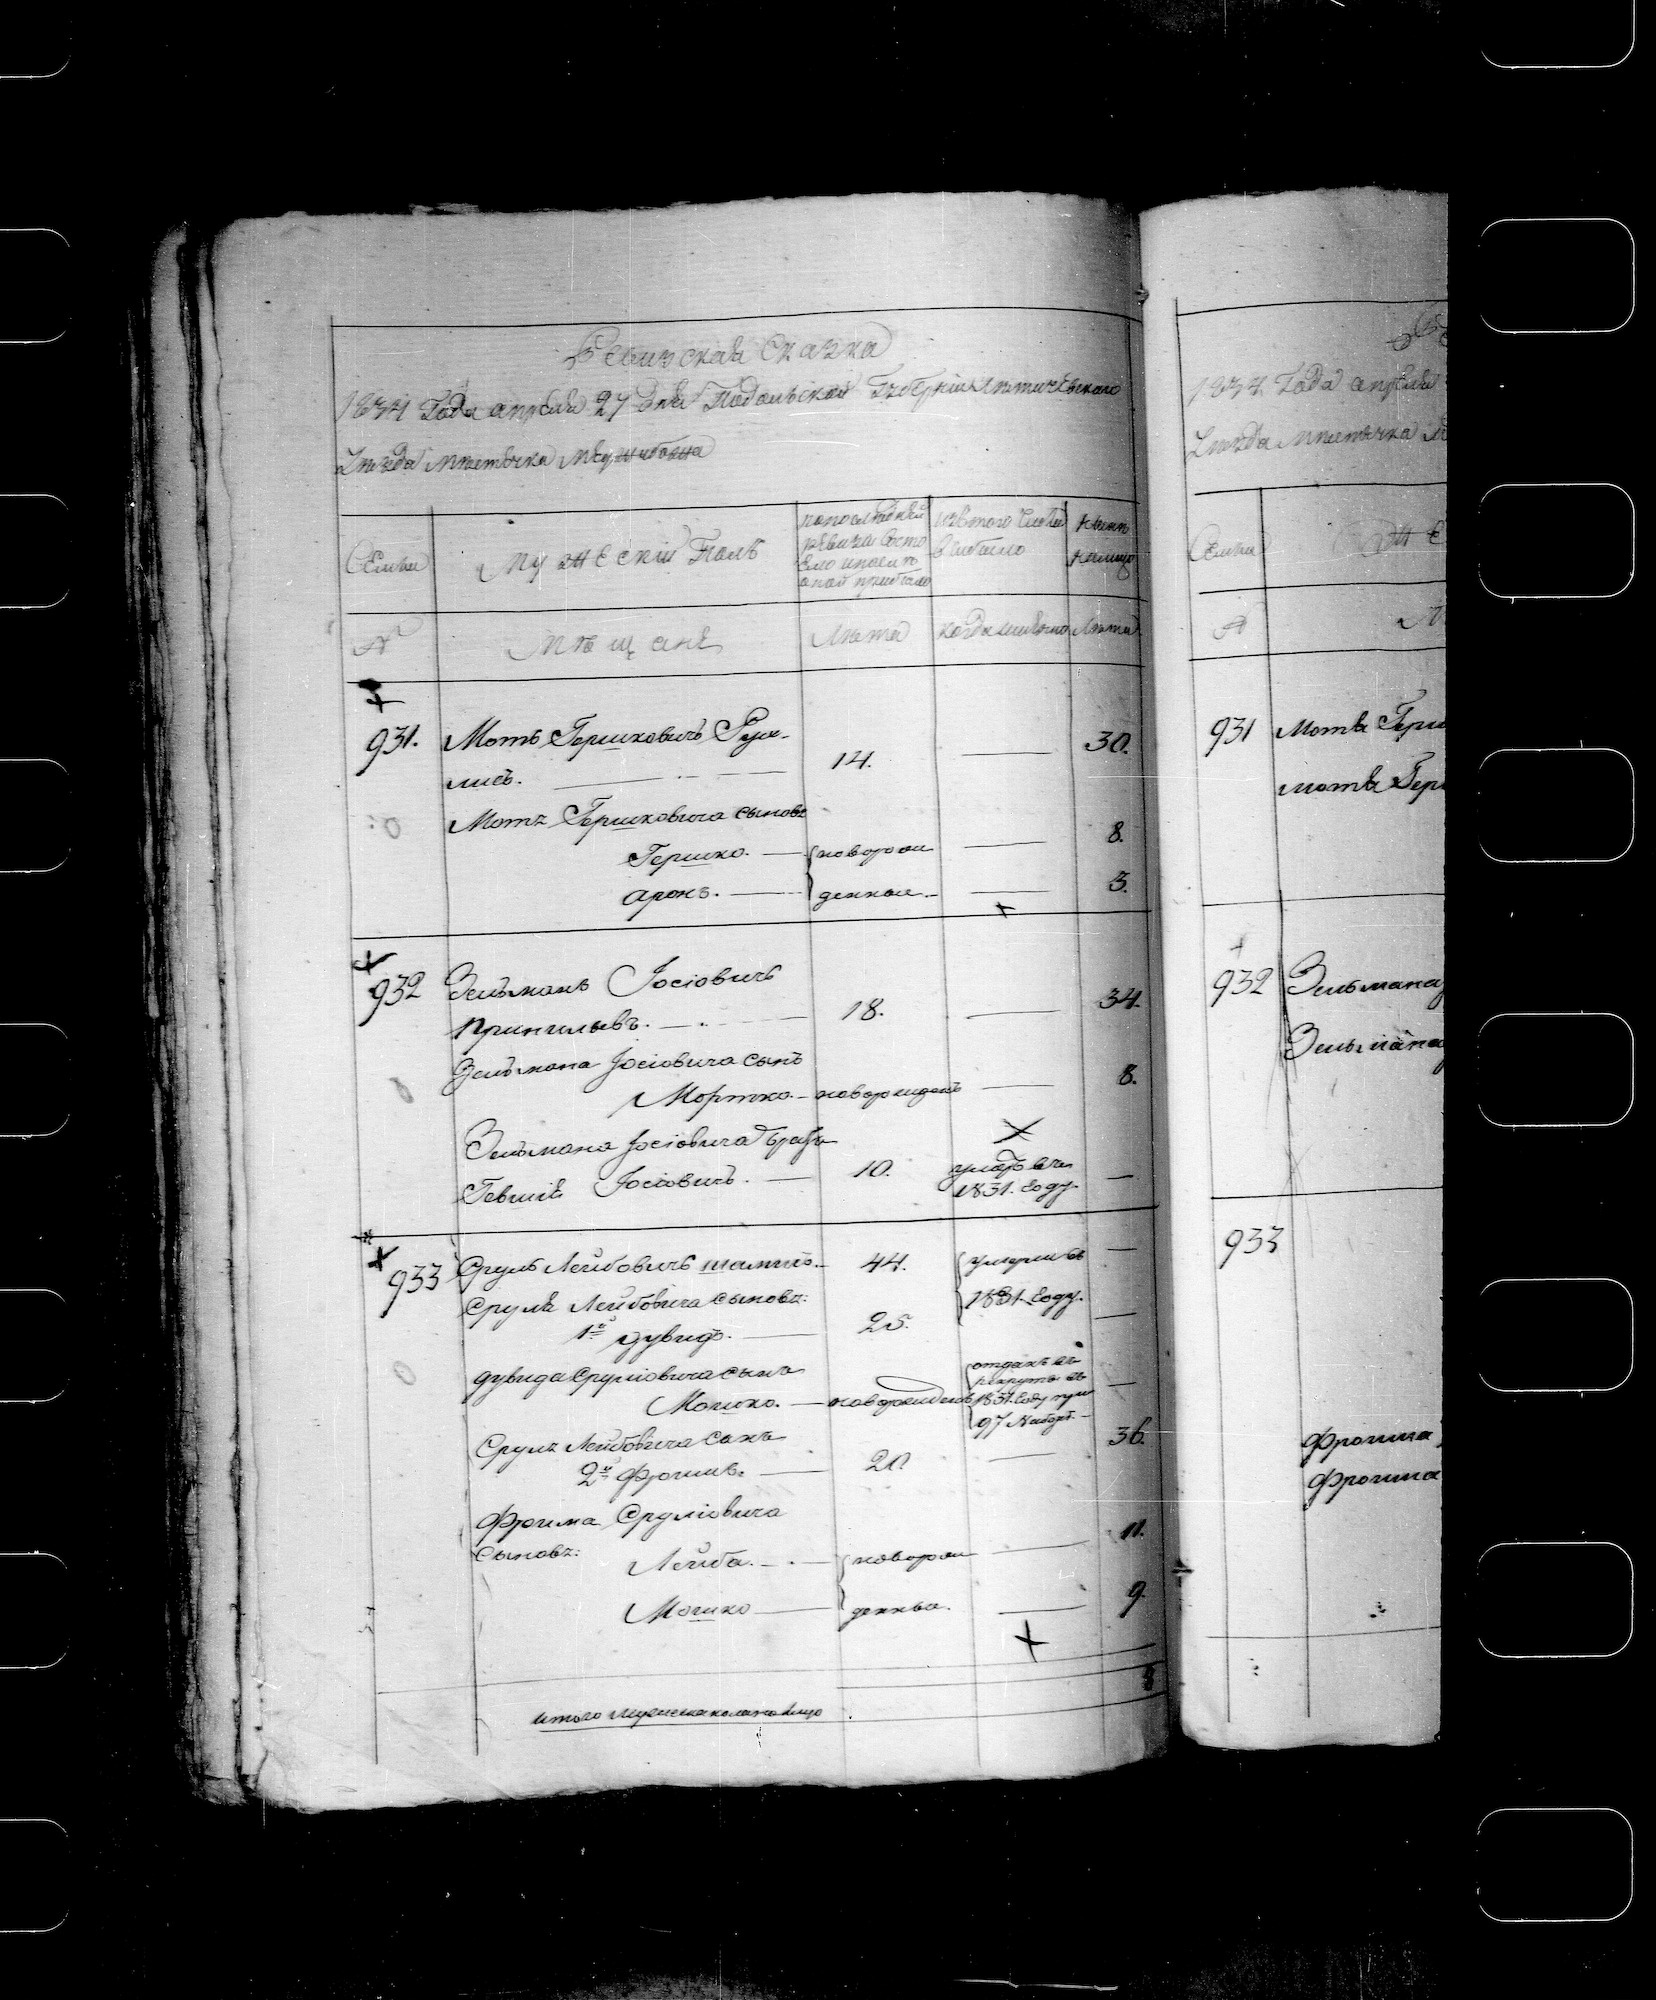 Ревизская Сказка
1834 Года апреля 27 дня Подольской Губернии Летичевского
Уезда местечка Меджибожа
Семьи
Мужескій Полъ
по последней ревизіи состояло и после оной прибыло
изъ того числа выбыло
ныне на лицо
№
Мѣщане
Лѣта
когда именно
Лѣта
931. Мотъ Гершковичъ 14. — 30.
Мотя Гершковича сыновья
Гершко. — новорож — 8.
аронъ. — денные — 3.
932 Зельманъ Іосіовичъ
18. — 34.
Зельмана Іосіовича сынъ
Мортко. — новорожденъ — 8.
Зельмана Іосіовича братъ
Іосіовичъ. — 10. умеръ въ 1831. году. —
933 Сруль Лейбовичъ 44. умерли въ —
Сруля Лейбовича сыновья: 1831 году.
1й дувид. — 25. —
дувида Сруліовича сынъ
Мошко. — новорожденъ отданъ въ рекруты въ 1831. году при 97 Наборѣ. —
Сруля Лейбовича сынъ
2й Фроимъ. — 20 — 36.
Фроима Сруліовича
сыновья: Лейба. — новорож — 11.
Мошко — денные. — 9.
итого мужеска пола на лицо 8
1834 Года апреля
Уезда местечка
Семьи
№
931 Мотя Герш
Мотя Герш
932 Зельмана
Зельмана
933
Фроима
Фроима